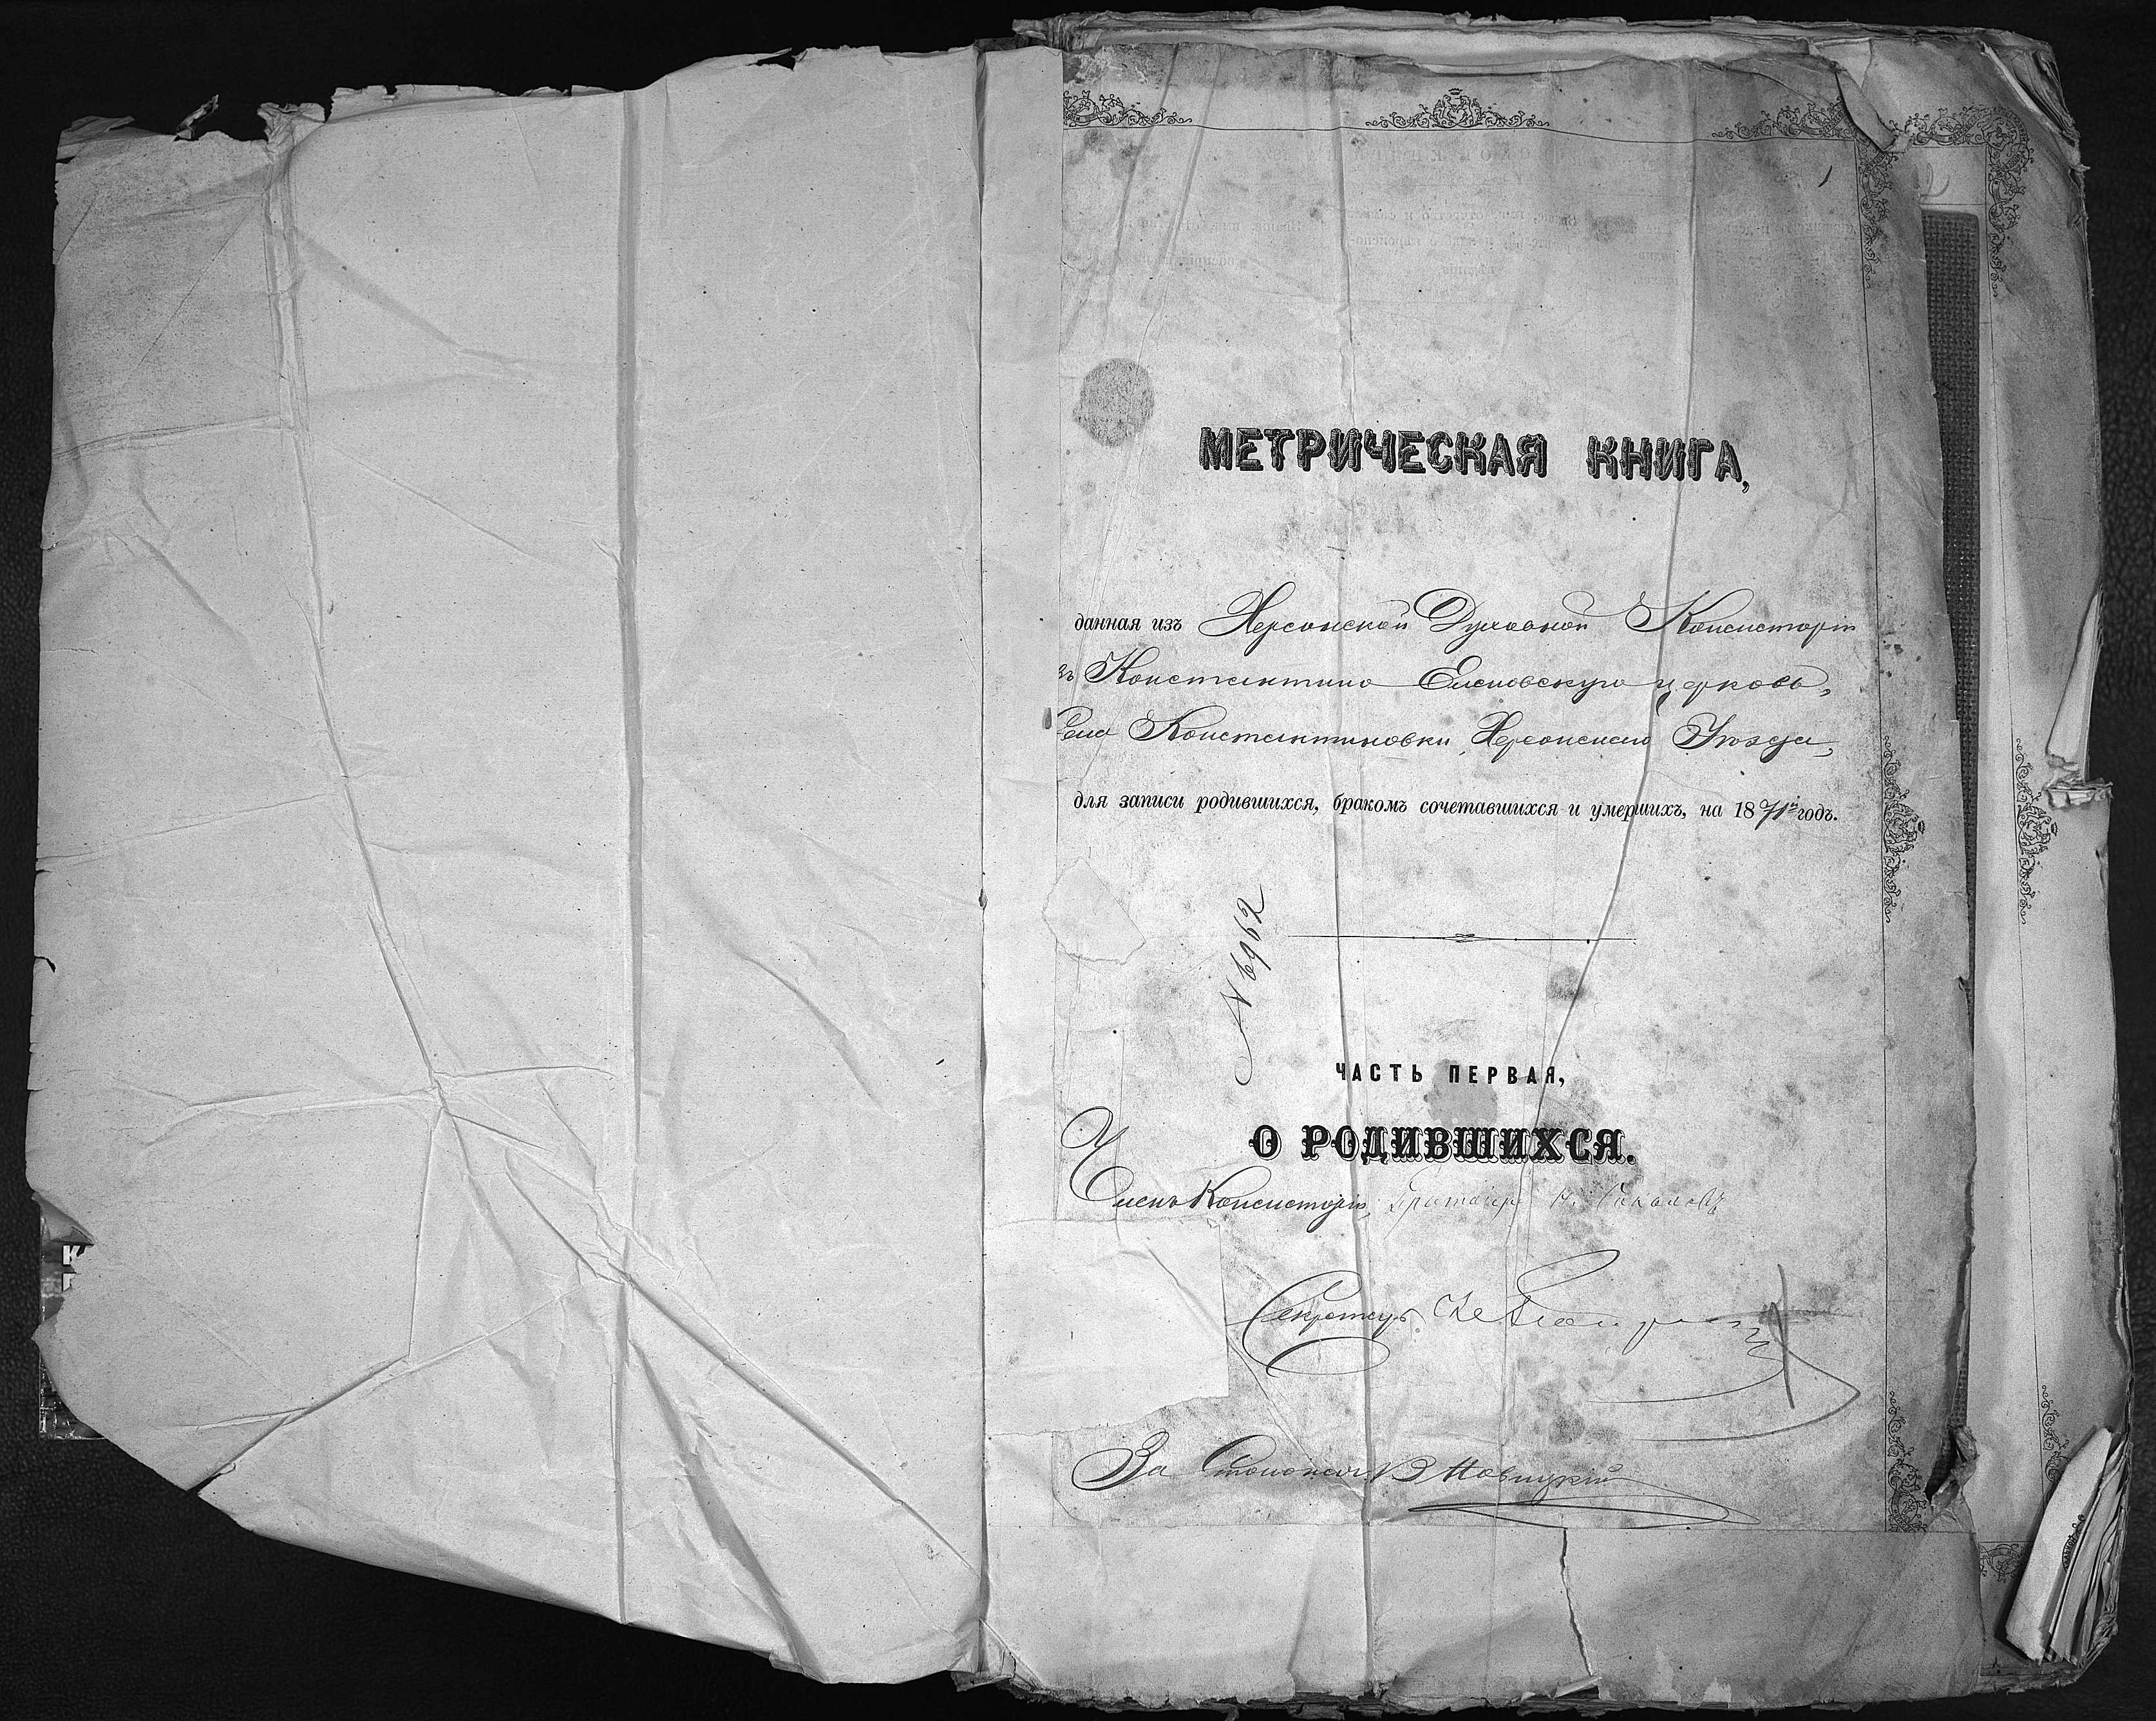 МЕТРИЧЕСКАЯ КНИГА,
данная изъ Херсонской Духовной Консисторіи
въ Константино Еленовскую церковь,
Села Константиновки, Херсонскаго Уѣзда,
для записи родившихся, бракомъ сочетавшихся и умершихъ, на 1871й годъ.
№ 6962
ЧАСТЬ ПЕРВАЯ,
О РОДИВШИХСЯ.
Членъ Консисторіи,
Секретарь
За Столоначал. В Новицкій